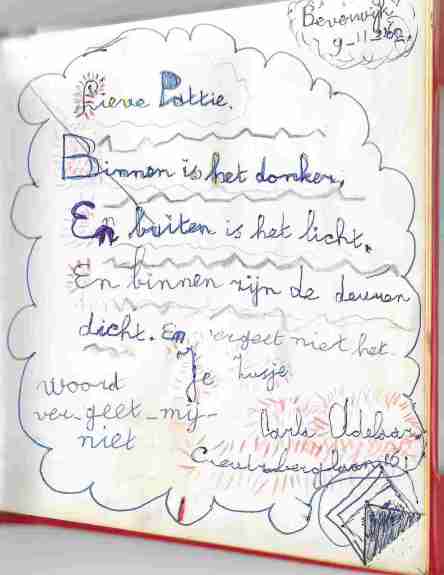 Beverwijk
9-11-
Lieve Pattie.
Binnen is het donker,
En buiten is het licht.
En binnen zijn de deuren
dicht. En vergeet niet het
woord
ver-geet-mij-
niet
Je zusje
Carla